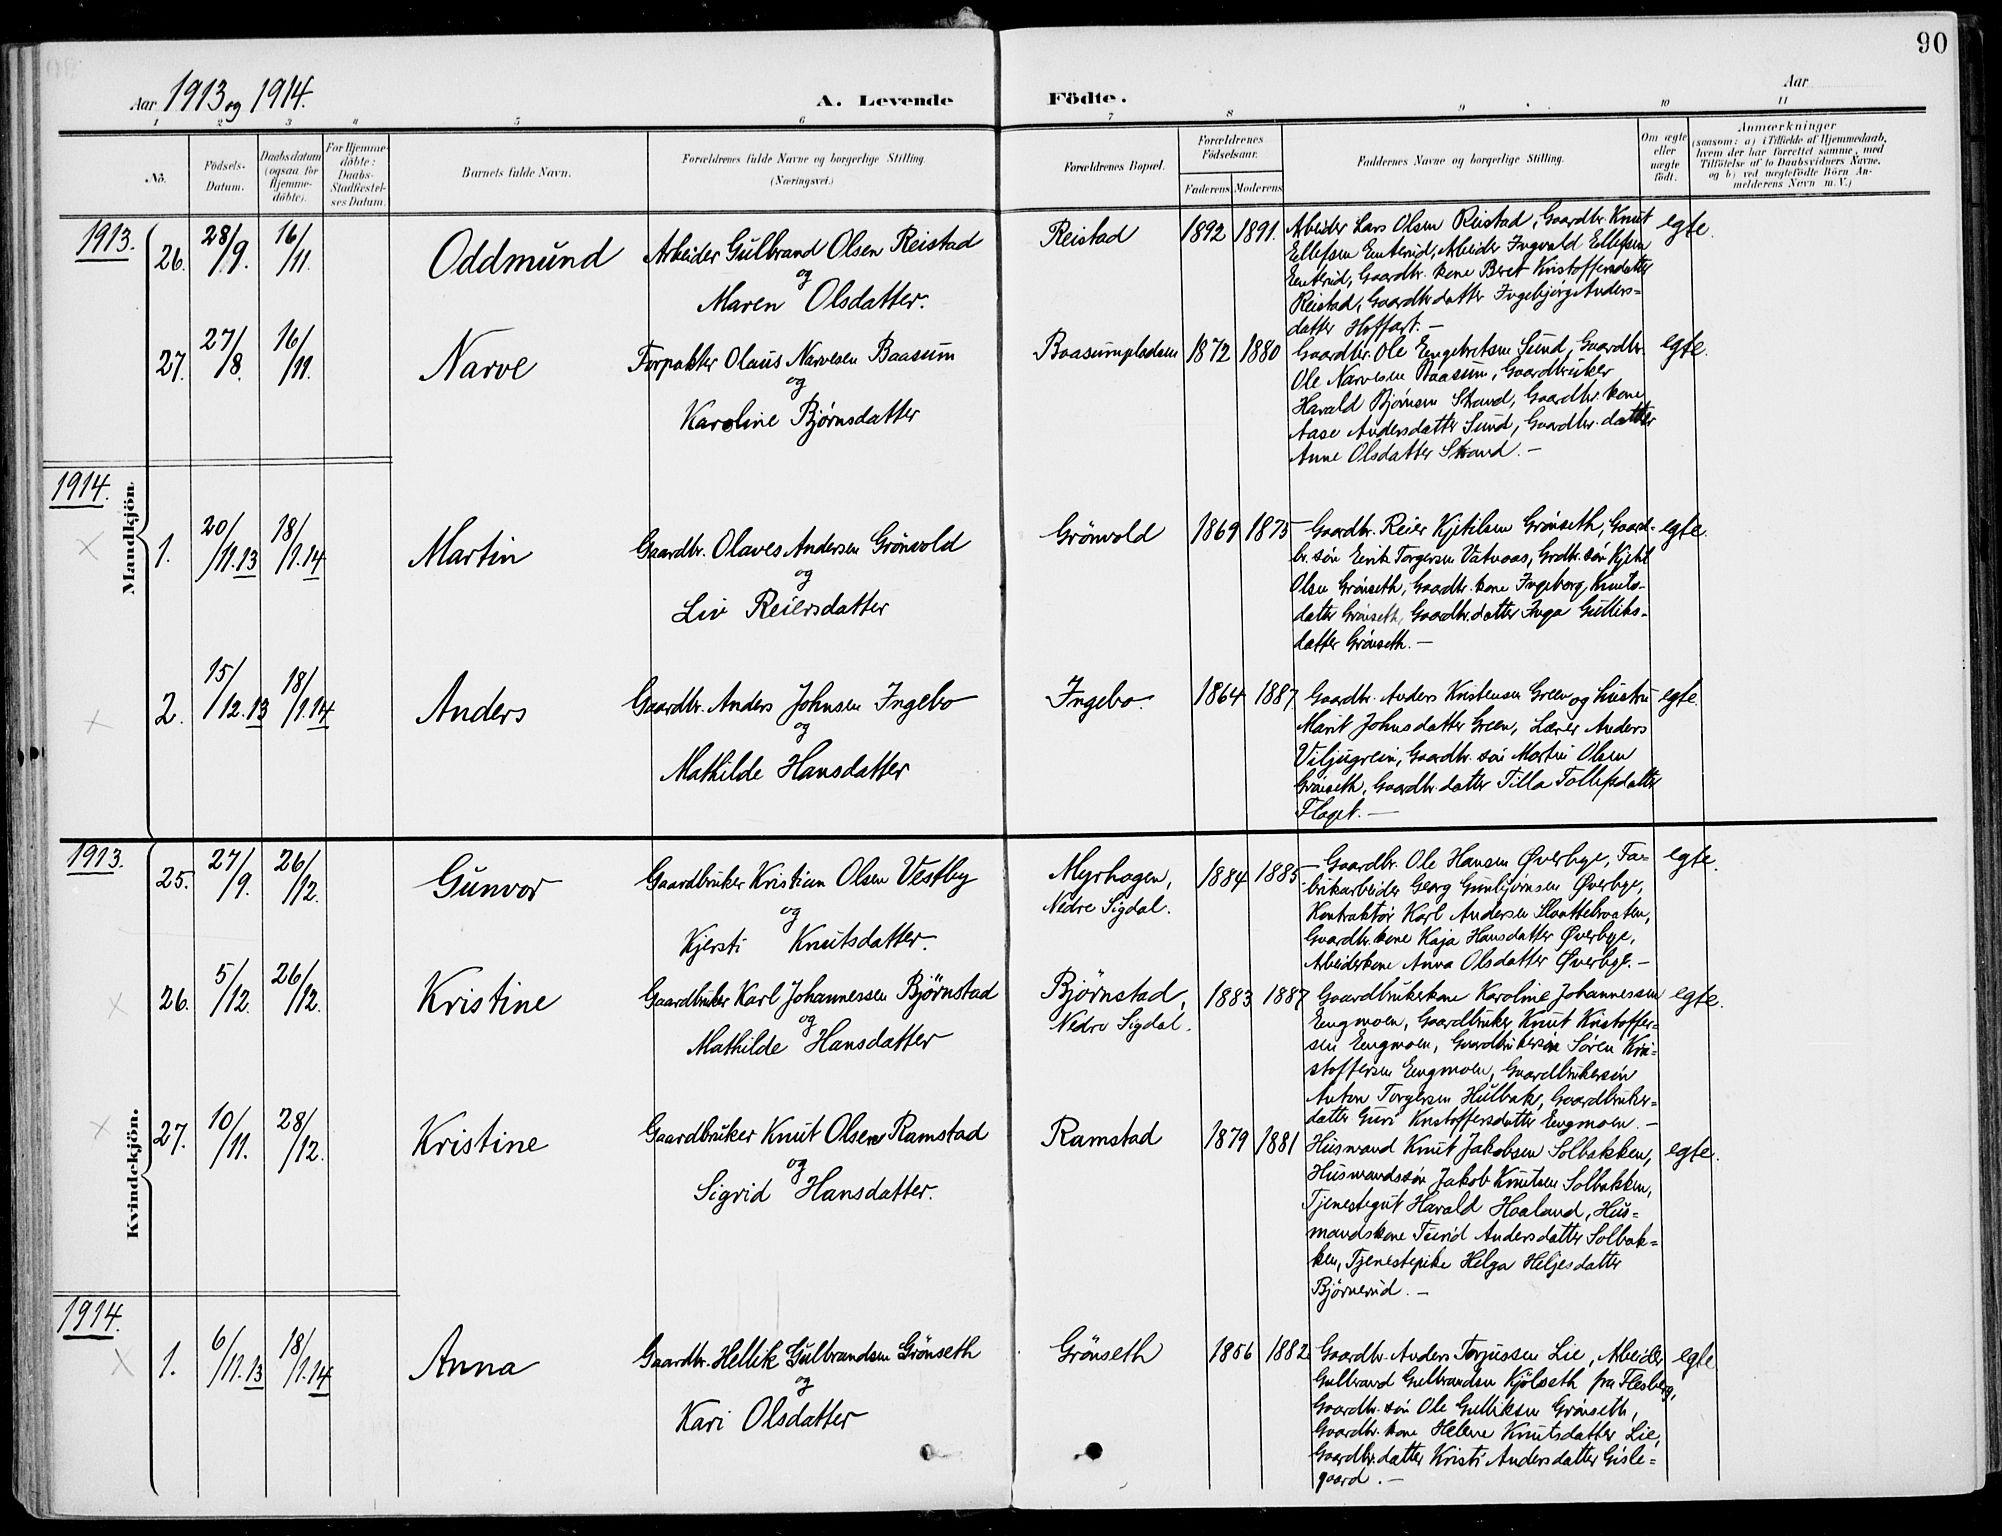 90
Aar 1913 og 1914.
A. Levende Födte.
Aar
1 2 3 4 5 6 7 8 9 10 11
No.
Födsels-Datum.
Daabsdatum (ogsaa for Hjemmedöbte).
For Hjemmedöbte: Daabs-Stadfæstelses Datum.
Barnets fulde Navn.
Forældrenes fulde Navne og borgerlige Stilling.
(Næringsvei.)
Forældrenes Bopæl.
Forældrenes Födselsaar.
Faderens Moderens
Faddernes Navne og borgerlige Stilling.
Om ægte eller uægte födt.
Anmærkninger
(saasom: a) i Tilfælde af Hjemmedaab, hvem der har forrettet samme, med Tilföielse af to Daabsvidners Navne, og b) ved uægtefödte Börn Anmelderens Navn m. V.)
Mandkjön.
1913.
26. 28/9. 16/11. Oddmund
Arbeider Gulbrand Olsen Reistad
og
Maren Olsdatter.
Reistad 1892 1891.
Arbeider Lars Olsen Reistad, Gaardbr. Knut
Ellefsen Enterud, Arbeider Ingvald Ellefsen
Enterud, Gaardbr. kone Beret Kristoffersdatter
Reistad, Gaardbr. datter Ingebjørg Anders-
datter Hoffart. –
egte.
27. 27/8. 16/11. Narve
Forpakter Olaus Narvesen Baasum
og
Karoline Bjørnsdatter
Baasumpladsen 1872 1880
Gaardbr. Ole Engebretsen Sund, Gaardbr.
Ole Narvesen Baasum, Gaardbruker
Harald Bjørnsen Strand, Gaardbr. kone
Aase Andersdatter Sund, Gaardbr. datter
Anne Olsdatter Strand. –
egte.
1914.
1. 20/11.13 18/1.14 Martin
Gaardbr. Olaves Andersen Grönvold
og
Liv Reiersdatter
Grönvold 1869 1875
Gaardbr. Reier Kjetilsen Grönseth, Gaard-
br. søn Eirik Torgersen Vatnaas, Grdbr. søn Kjetil
Olsen Grönseth, Gaardbr. kone Ingeborg Knuts-
datter Grönseth, Gaardbr. datter Inga Gulliks-
datter Grönseth. –
egte.
2. 15/12.13 18/1.14 Anders
Gaardbr. Anders Johnsen Ingebo
og
Mathilde Hansdatter
Ingebo. 1864 1887
Gaardbr. Anders Kristensen Green og hustru
Marit Johnsdatter Green, Lærer Anders
Viljugrein, Gaardbr. søn Martin Olsen
Grönseth, Gaardbr. datter Tilla Tollefsdatter
Flaget. –
egte.
Kvindekjön.
1913.
25. 27/9. 26/12. Gunvor
Gaardbruker Kristian Olsen Vestby
og
Kjersti Knutsdatter.
Myrhagen,
Nedre Sigdal.
1884 1885
Gaardbr. Ole Hansen Øverbye, Fa-
brikarbeider Georg Gunbjörnsen Øverbye,
Kontraktør Karl Andersen Slaattebraaten,
Gaardbr. kone Kaja Hansdatter Øverbye,
Arbeiderkone Anna Olsdatter Øverbye. –
egte.
26. 5/12. 26/12. Kristine
Gaardbruker Karl Johannessen Björnstad
og
Mathilde Hansdatter
Björnstad,
Nedre Sigdal.
1883 1887
Gaardbrukerkone Karoline Johannessen
Engmoen, Gaardbruker Knut Kristoffer-
sen Engmoen, Gaardbrukersøn Søren Kri-
stoffersen Engmoen, Gaardbrukersøn
Anton Torgersen Hulbak, Gaardbruker-
datter Guri Kristoffersdatter Engmoen. –
egte.
27. 10/11. 28/12. Kristine
Gaardbruker Knut Olsen Ramstad
og
Sigrid Hansdatter.
Ramstad 1879 1881
Husmand Knut Jakobsen Solbakken,
Husmandssøn Jakob Knutsen Solbakken,
Tjenestegut Harald Haaland, Hus-
mandskone Turid Andersdatter Solbak-
ken, Tjenestepike Helga Heljesdatter
Björnerud. –
egte.
1914.
1. 6/11.13 18/1.14 Anna
Gaardbr. Hellik Gulbrandsen Grönseth
og
Kari Olsdatter
Grönseth 1856 1882
Gaardbr. Anders Torjussen Lie, Arbeider
Gulbrand Gulbrandsen Kjölseth fra Flesberg,
Gaardbr. søn Ole Gulliksen Grönseth,
Gaardbr. kone Helene Knutsdatter Lie,
Gaardbr. datter Kristi Andersdatter Gisle-
gaard. –
egte